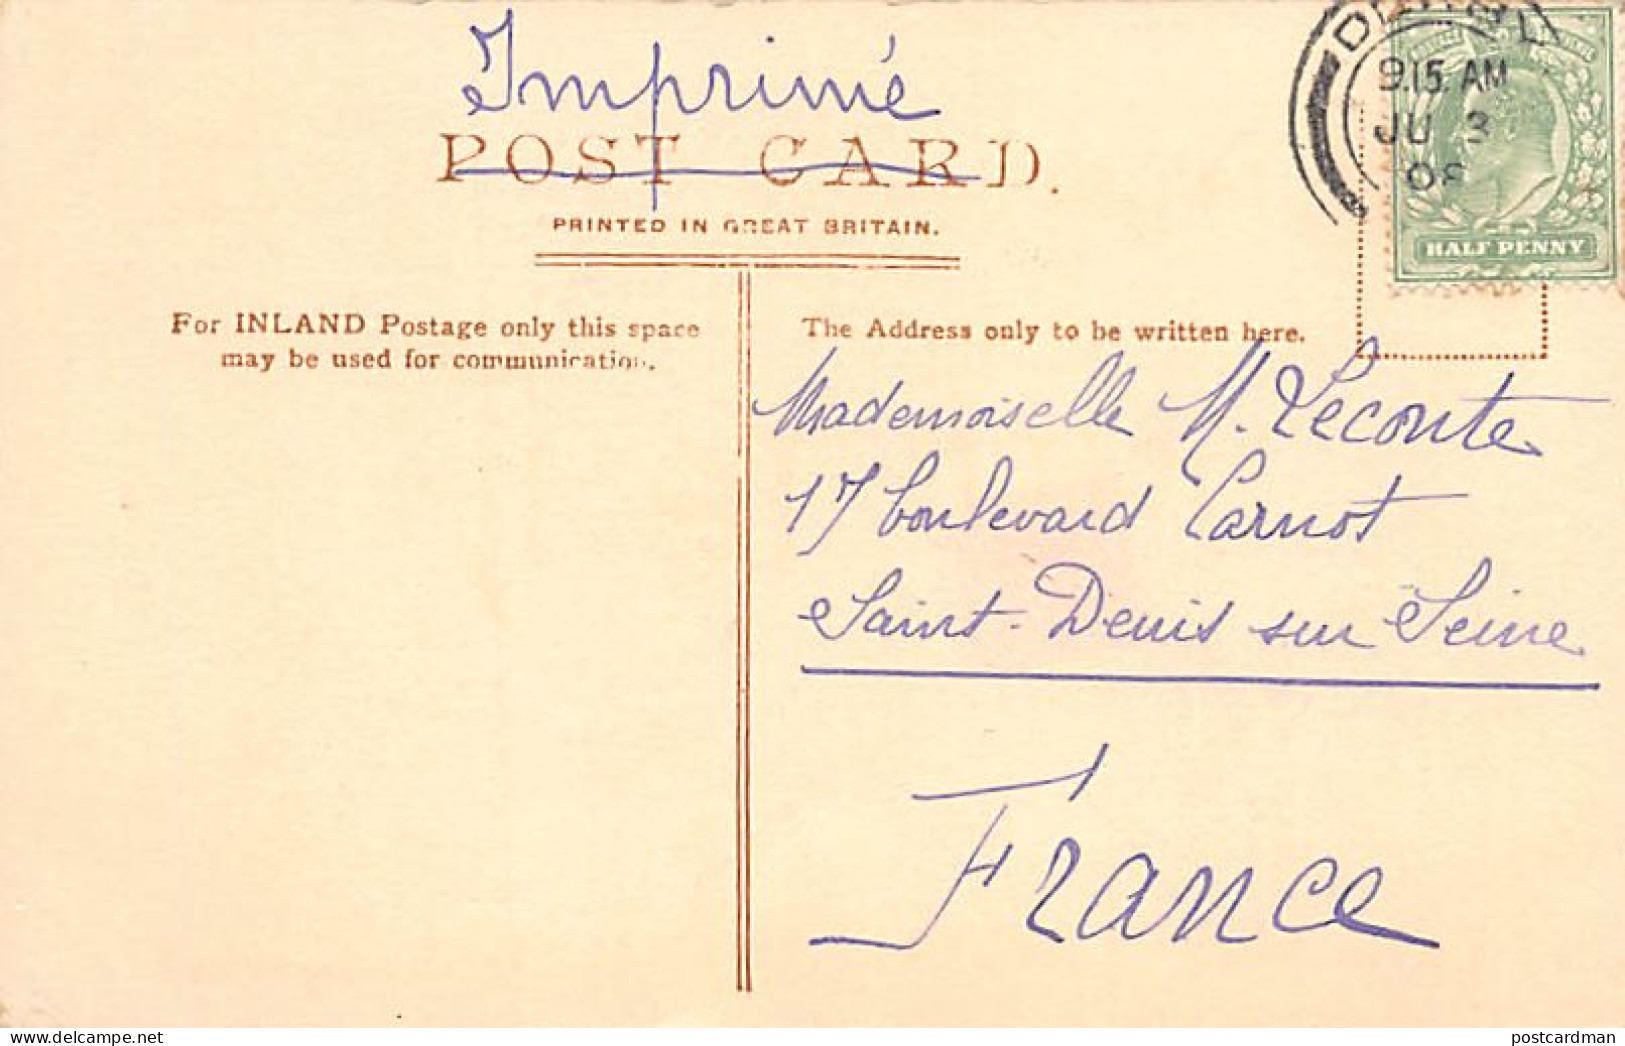 Imprimé
POST CARD.
PRINTED IN GREAT BRITAIN.
9.15 AM
JU 3
08
HALF PENNY
For INLAND Postage only this space
may be used for communication.
The Address only to be written here.
Mademoiselle M. Leconte
17 boulevard Carnot
Saint-Denis sur Seine
France
delcampe.net
postcardman